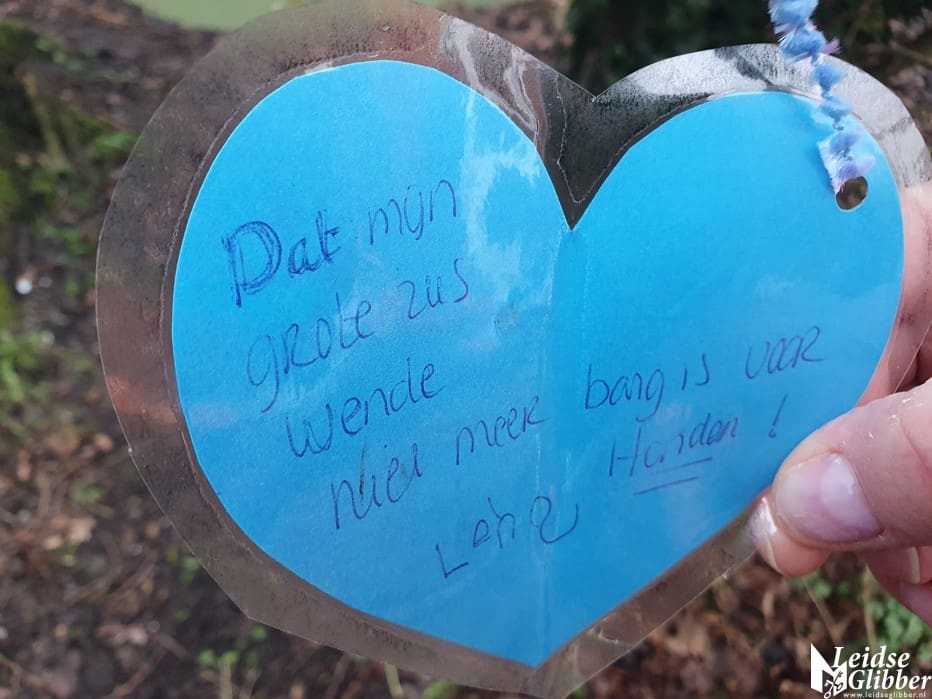 Dat mijn
grote zus
wende
niet meer bang is voor
Honden!
Leidse
Glibber
www.leidseglibber.nl